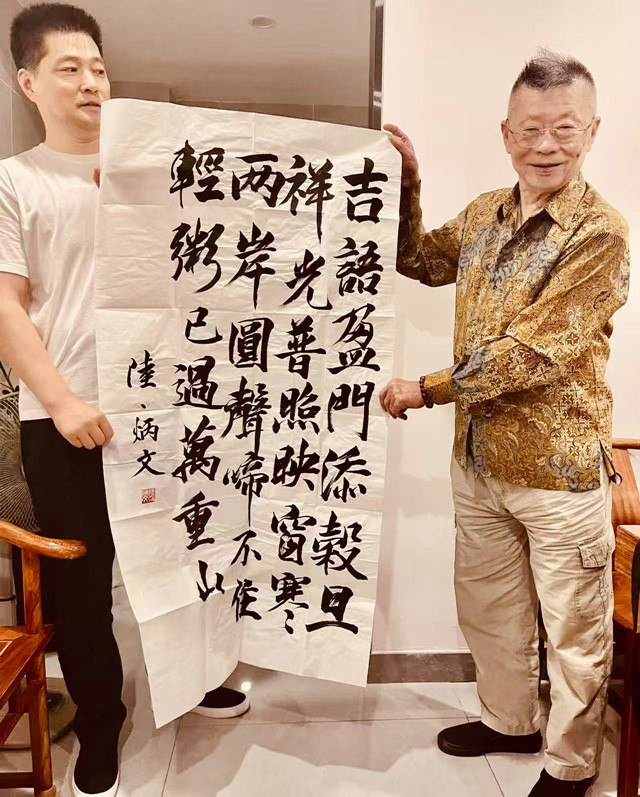 吉語盈門添穀旦
祥光普照映窗寒
两岸圓聲啼不住
輕粥已過萬重山
陸、炳文